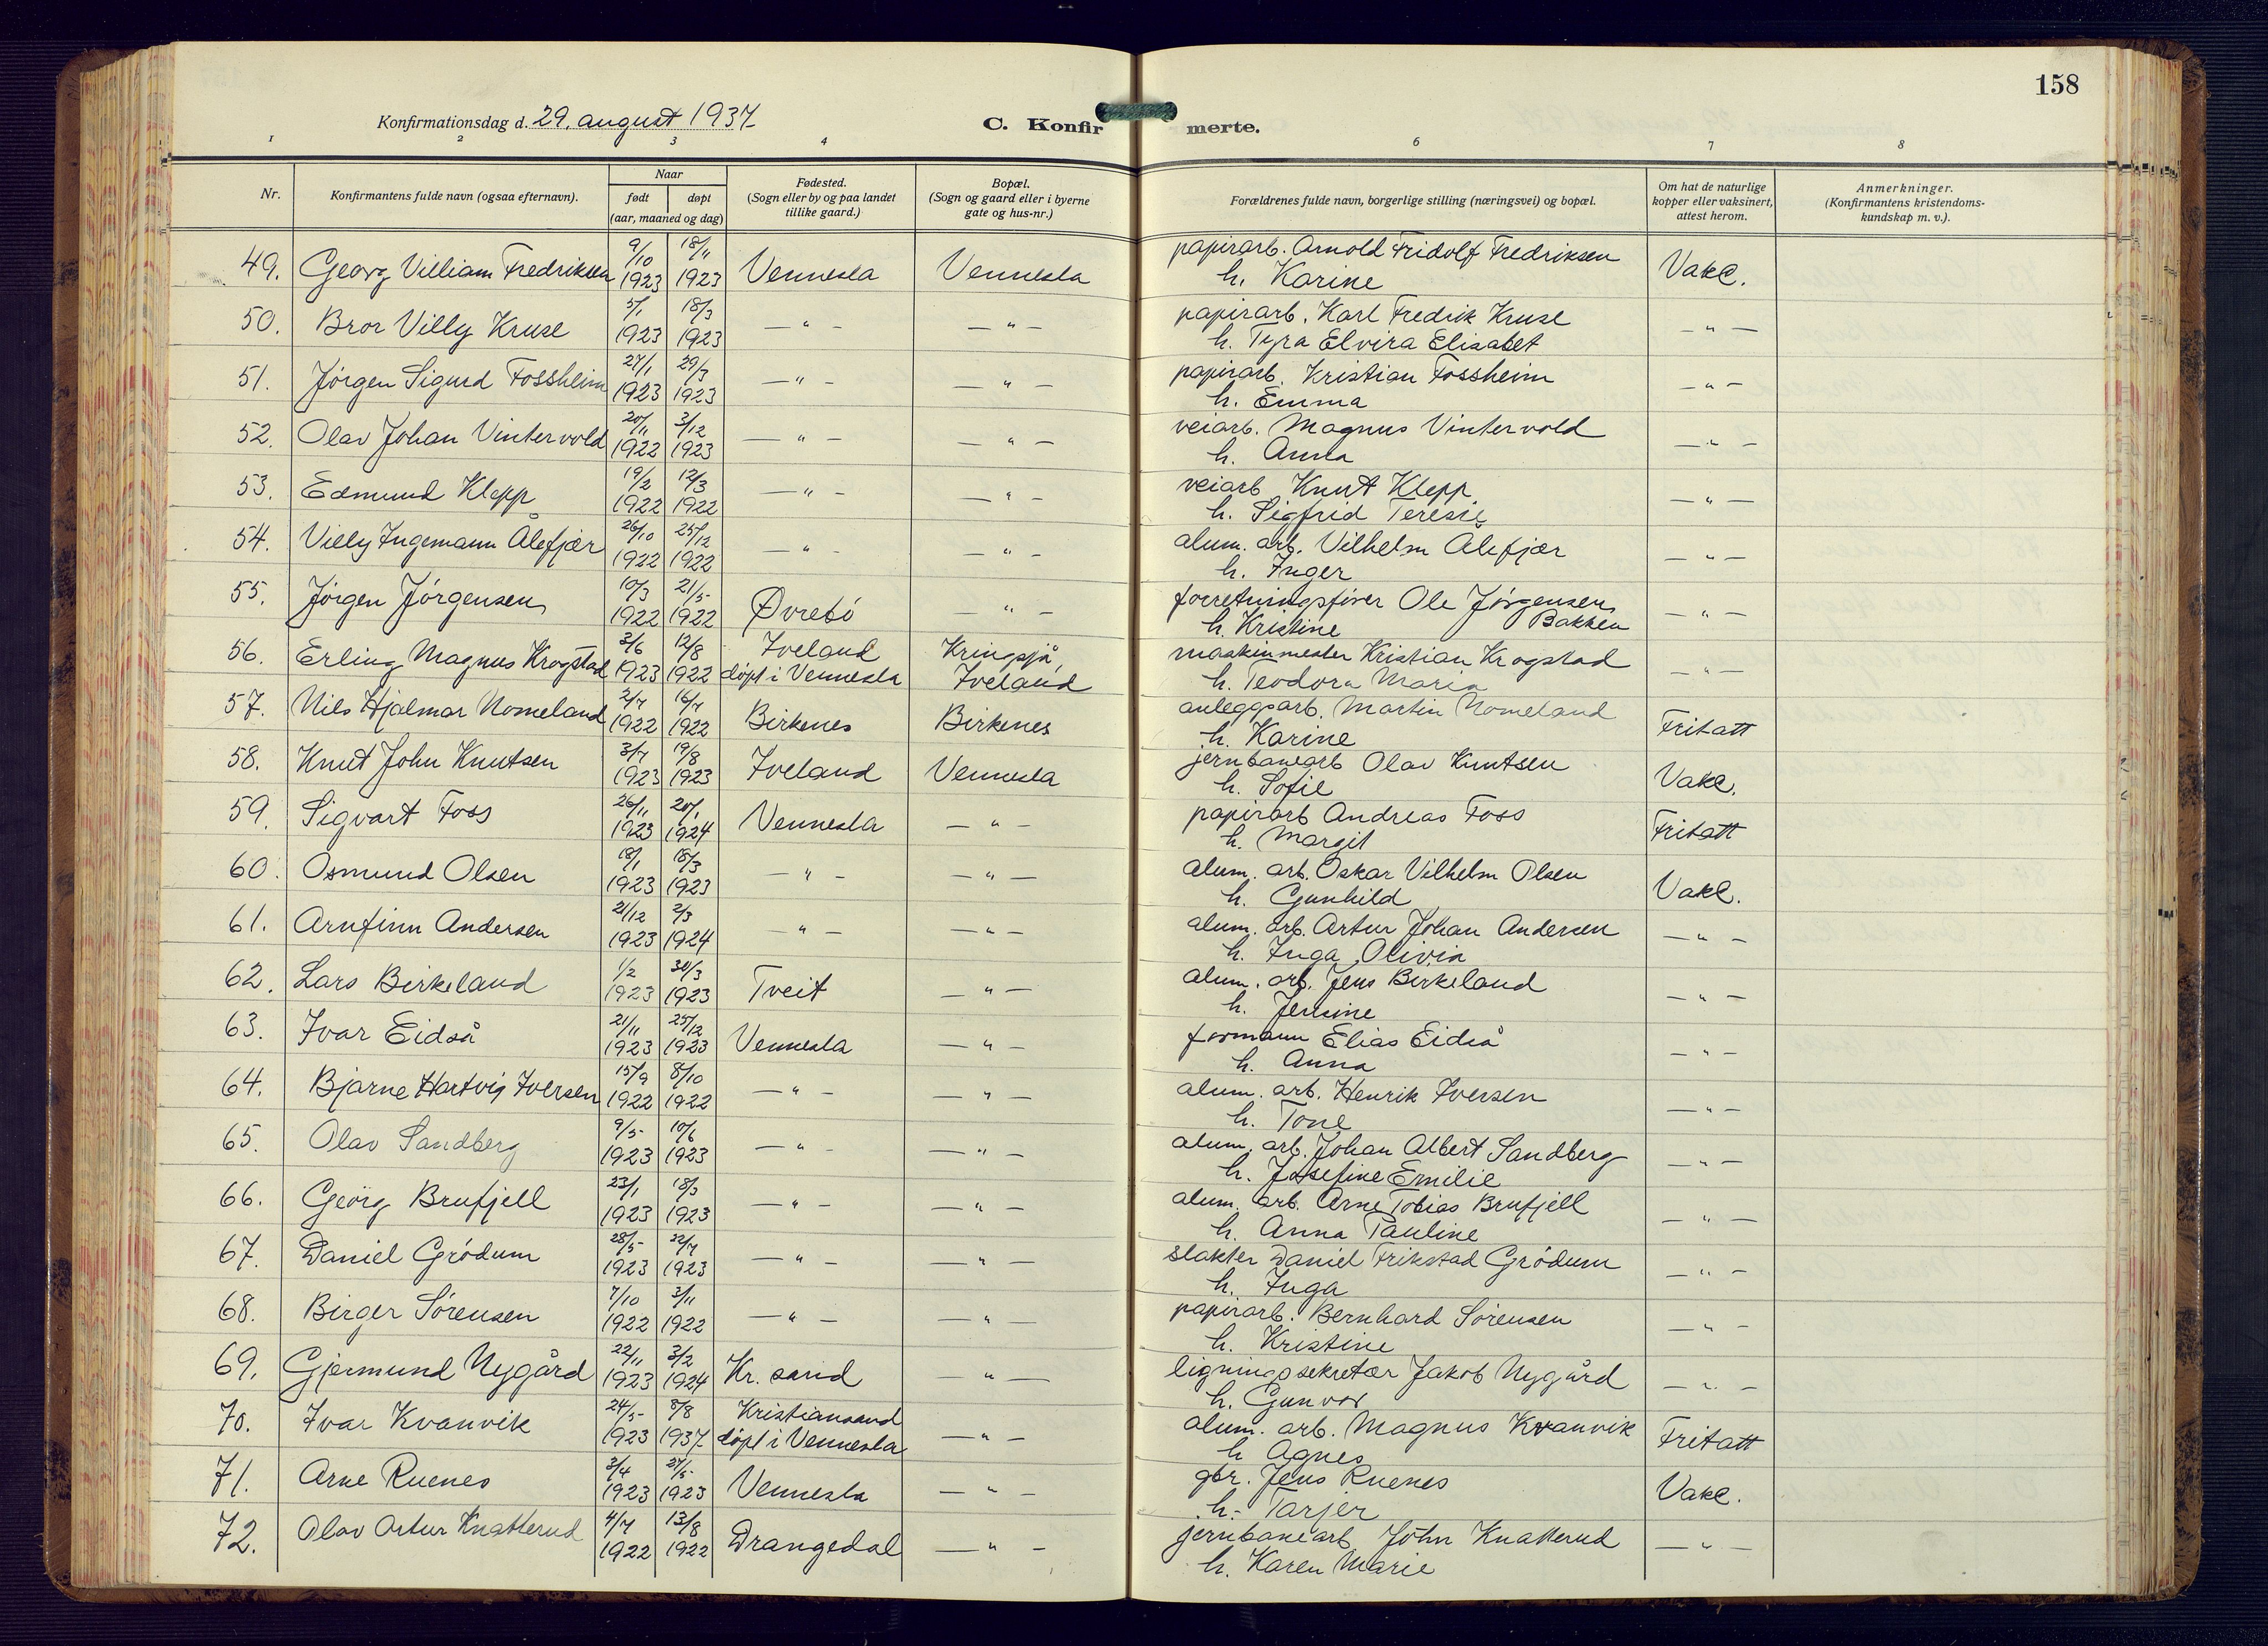 158
Konfirmationsdag d. 29. august 1937
C. Konfirmerte.
1 2 3 4 6 7 8
Nr.
Konfirmantens fulde navn (ogsaa efternavn).
Naar
født døpt
(aar, maaned og dag)
Fødested.
(Sogn eller by og paa landet
tillike gaard.)
Bopæl.
(Sogn og gaard eller i byerne
gate og hus-nr.)
Forældrenes fulde navn, borgerlige stilling (næringsvei) og bopæl.
Om hat de naturlige
kopper eller vaksinert,
attest herom.
Anmerkninger.
(Konfirmantens kristendoms-
kundskap m. v.).
49. Georg Villiam Fredriksen 9/10 1923 18/11 1923 Vennesla Vennesla papirarb. Arnold Fridolf Fredriksen
h. Karine Vakc.
50. Bror Villy Kruse 5/1 1923 18/3 1923 — " — — " — papirarb. Karl Fredrik Kruse
h. Tyra Elvira Elisabet — " —
51. Jörgen Sigurd Fossheim 27/1 1923 29/3 1923 — " — — " — papirarb. Kristian Fossheim
h. Emma — " —
52. Olav Johan Vintervold 20/11 1922 3/12 1923 — " — — " — veiarb. Magnus Vintervold
h. Anna — " —
53. Edmund Klepp 19/2 1922 12/3 1922 — " — — " — veiarb. Knut Klepp
h. Sigfrid Teresie — " —
54. Villy Ingemann Ålefjær 26/10 1922 25/12 1922 — " — — " — alum. arb. Vilhelm Alefjær
h. Inger — " —
55. Jörgen Jörgensen 10/3 1922 21/5 1922 Øvrebö — " — forretningsfører Ole Jörgensen
h. Kristine Bakken — " —
56. Erling Magnus Krogstad 3/6 1923 12/8 1922 Iveland
döpt i Vennesla Kringsjå,
Iveland maskinmester Kristian Krogstad
h. Teodora Maria — " —
57. Nils Hjalmar Nomeland 2/7 1922 16/7 1922 Birkenes Birkenes anleggsarb. Martin Nomeland
h. Karine Fritatt
58. Knut John Knutsen 3/7 1923 19/8 1923 Iveland Vennesla jernbanearb Olav Knutsen
h. Sofie Vakc.
59. Sigvart Foss 26/11 1923 20/1 1924 Vennesla — " — papirarb Andreas Foss
h. Margit Fritatt
60. Osmund Olsen 18/1 1923 18/3 1923 — " — — " — alum. arb. Oskar Vilhelm Olsen
h. Gunhild Vakc.
61. Arnfinn Andersen 21/12 1923 2/3 1924 — " — — " — alum. arb. Artur Johan Andersen
h. Inga Olivia — " —
62. Lars Birkeland 1/2 1923 30/3 1923 Tveit — " — alum. arb. Jens Birkeland
h. Jensine — " —
63. Ivar Eidså 21/11 1923 25/12 1923 Vennesla — " — formann Elias Eidså
h. Anna — " —
64. Bjarne Hartvig Iversen 15/9 1922 8/10 1922 — " — — " — alum. arb. Henrik Iversen
h. Tone — " —
65. Olav Sandberg 9/5 1923 10/6 1923 — " — — " — alum. arb. Johan Albert Sandberg
h. Josefine Emilie — " —
66. Georg Brufjell 23/1 1923 18/3 1923 — " — — " — alum. arb. Arne Tobias Brufjell
h. Anna Pauline — " —
67. Daniel Grödum 28/5 1923 22/7 1923 — " — — " — slakter Daniel Frikstad Grödum
h. Inga — " —
68. Birger Sörensen 7/10 1922 3/11 1922 — " — — " — papirarb. Bernhard Sörensen
h. Kristine — " —
69. Gjermund Nygård 22/11 1923 3/2 1924 Kr. sand — " — ligningssekretær Jakob Nygård
h. Gunvor — " —
70. Ivar Kvanvik 24/5 1923 8/8 1937 Kristiansand
döpt i Vennesla — " — alum. arb. Magnus Kvanvik
h Agnes Fritatt
71. Arne Ruenes 3/4 1923 27/5 1923 Vennesla — " — gbr. Jens Ruenes
h. Tarjer Vakc.
72. Olav Artur Knatterud 4/7 1922 13/8 1922 Drangedal — " — jernbanearb John Knatterud
h. Karen Marie — " —